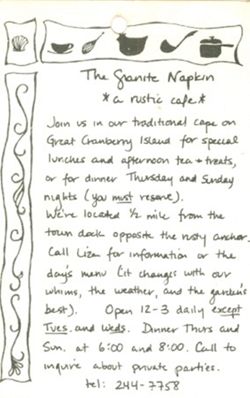 The Granite Napkin
*a rustic cafe*
Join us in our traditional cape on
Great Cranberry Island for special
lunches and afternoon tea + treats,
or for dinner Thursday and Sunday
nights (you must reserve).
We're located ½ mile from the
town dock opposite the rusty anchor.
Call Liza for information or the
day's menu (it changes with our
whims, the weather, and the garden's
best). Open 12-3 daily except
Tues. and Weds. Dinner Thurs and
Sun. at 6:00 and 8:00. Call to
inquire about private parties.
tel: 244-7758